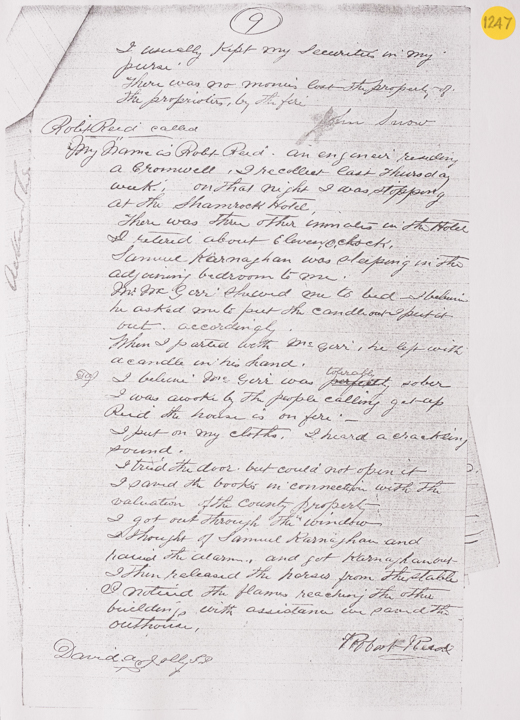 9
1247
I usually kept my Securities in my
purse.
There was no monies lost the property of
the proprietors, by the fire
John Snow
Robt Reid called
My Name is Robt Reid. an engineer residing
a Cromwell, I recollect last Thursday
week, on that night I was stopping
at the Shamrock Hotel,
There was three other inmates in the Hotel
I retired about Eleven oclock.
Samuel Karnaghan was sleeping in the
adjoining bedroom to me.
Mr Mc Girr Showed me to bed I believe
he asked me to put the candle out I put it
out accordingly.
When I parted with Mc Girr, he left with
a candle in his hand.
I believe Mc Girr was perfectly sober
I was awoke by the people calling get up
Reid the house is on fire.
I put on my cloths. I heard a cracking
sound.
I tried the door but could not open it
I saved the books in connection with the
valuation of the County property
I got out through the window
I thought of Samuel Karnaghan and
raised the alarm, and got Karnaghan out
I then released the horses from the stable
I noticed the flames reaching the other
buildings with assistance we saved the
outhouse.
Robert Reid
David A Jolly